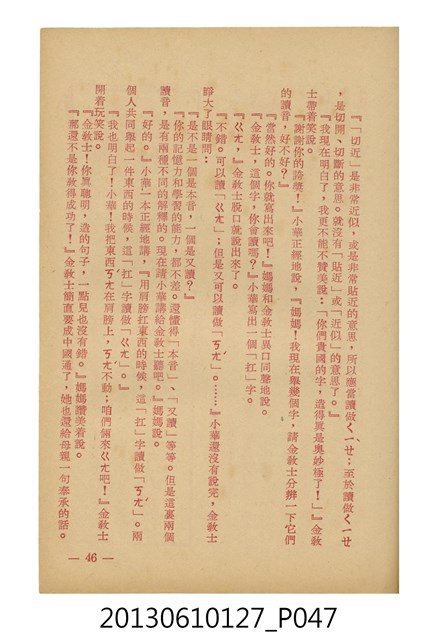 『「切近」是非常近似，或是非常貼近的意思，所以應當讀做ㄑㄧㄝˋ；至於讀做ㄑㄧㄝ
，是切開、切斷的意思。就沒有「貼近」或「近似」的意思了。』
『我現在明白了，我更不能不贊美說：「你們貴國的字，造得眞是奧妙極了！」』金敎
士帶着笑說。
『謝謝你的誇獎！』小華正經地說，『媽媽！我現在舉幾個字，請金敎士分辨一下它們
的讀音，好不好？』
『當然好的。你就寫出來吧！』媽媽和金敎士異口同聲地說。
『金敎士，這個字，你會讀嗎？』小華寫出一個「扛」字。
『ㄍㄤ，』金敎士脫口就說出來了。
『不錯。可以讀「ㄍㄤ」；但是又可以讀做「ㄎㄤˊ」。……』小華還沒有說完，金敎士
睜大了眼睛問：
『是不是一個是本音，一個是又讀？』
『你的記憶力和學習的能力，都不差。還懂得「本音」、「又讀」等等。但是這裏兩個
讀音，是有兩種不同的解釋的。現在請小華講給金敎士聽吧。』媽媽說。
『好的。』小華一本正經地講，『用肩膀扛東西的時候，這「扛」字讀做「ㄎㄤˊ」。兩
個人共同舉起一件東西的時候，這「扛」字讀做「ㄍㄤ」。』
『我也明白了！小華！我把東西ㄎㄤˊ在肩膀上，ㄎㄤˊ不動；咱們倆來ㄍㄤ吧！』金敎士
開着玩笑說。
『金敎士！你眞聰明，造的句子，一點兒也沒有錯。』媽媽讚美着說。
『那還不是你敎得成功了！』金敎士簡直要成中國通了，她也還給母親一句奉承的話。
— 46 —
20130610127_P047